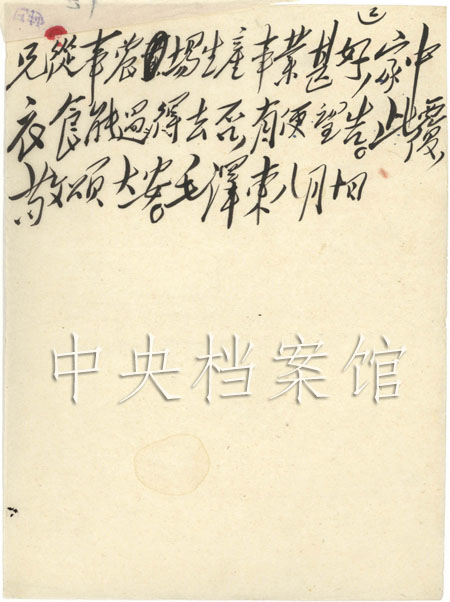 兄從事農場生產事業甚好，家中
衣食能過得去否，有便望告。此覆
敬頌大安。毛澤東八月十四
中央档案馆